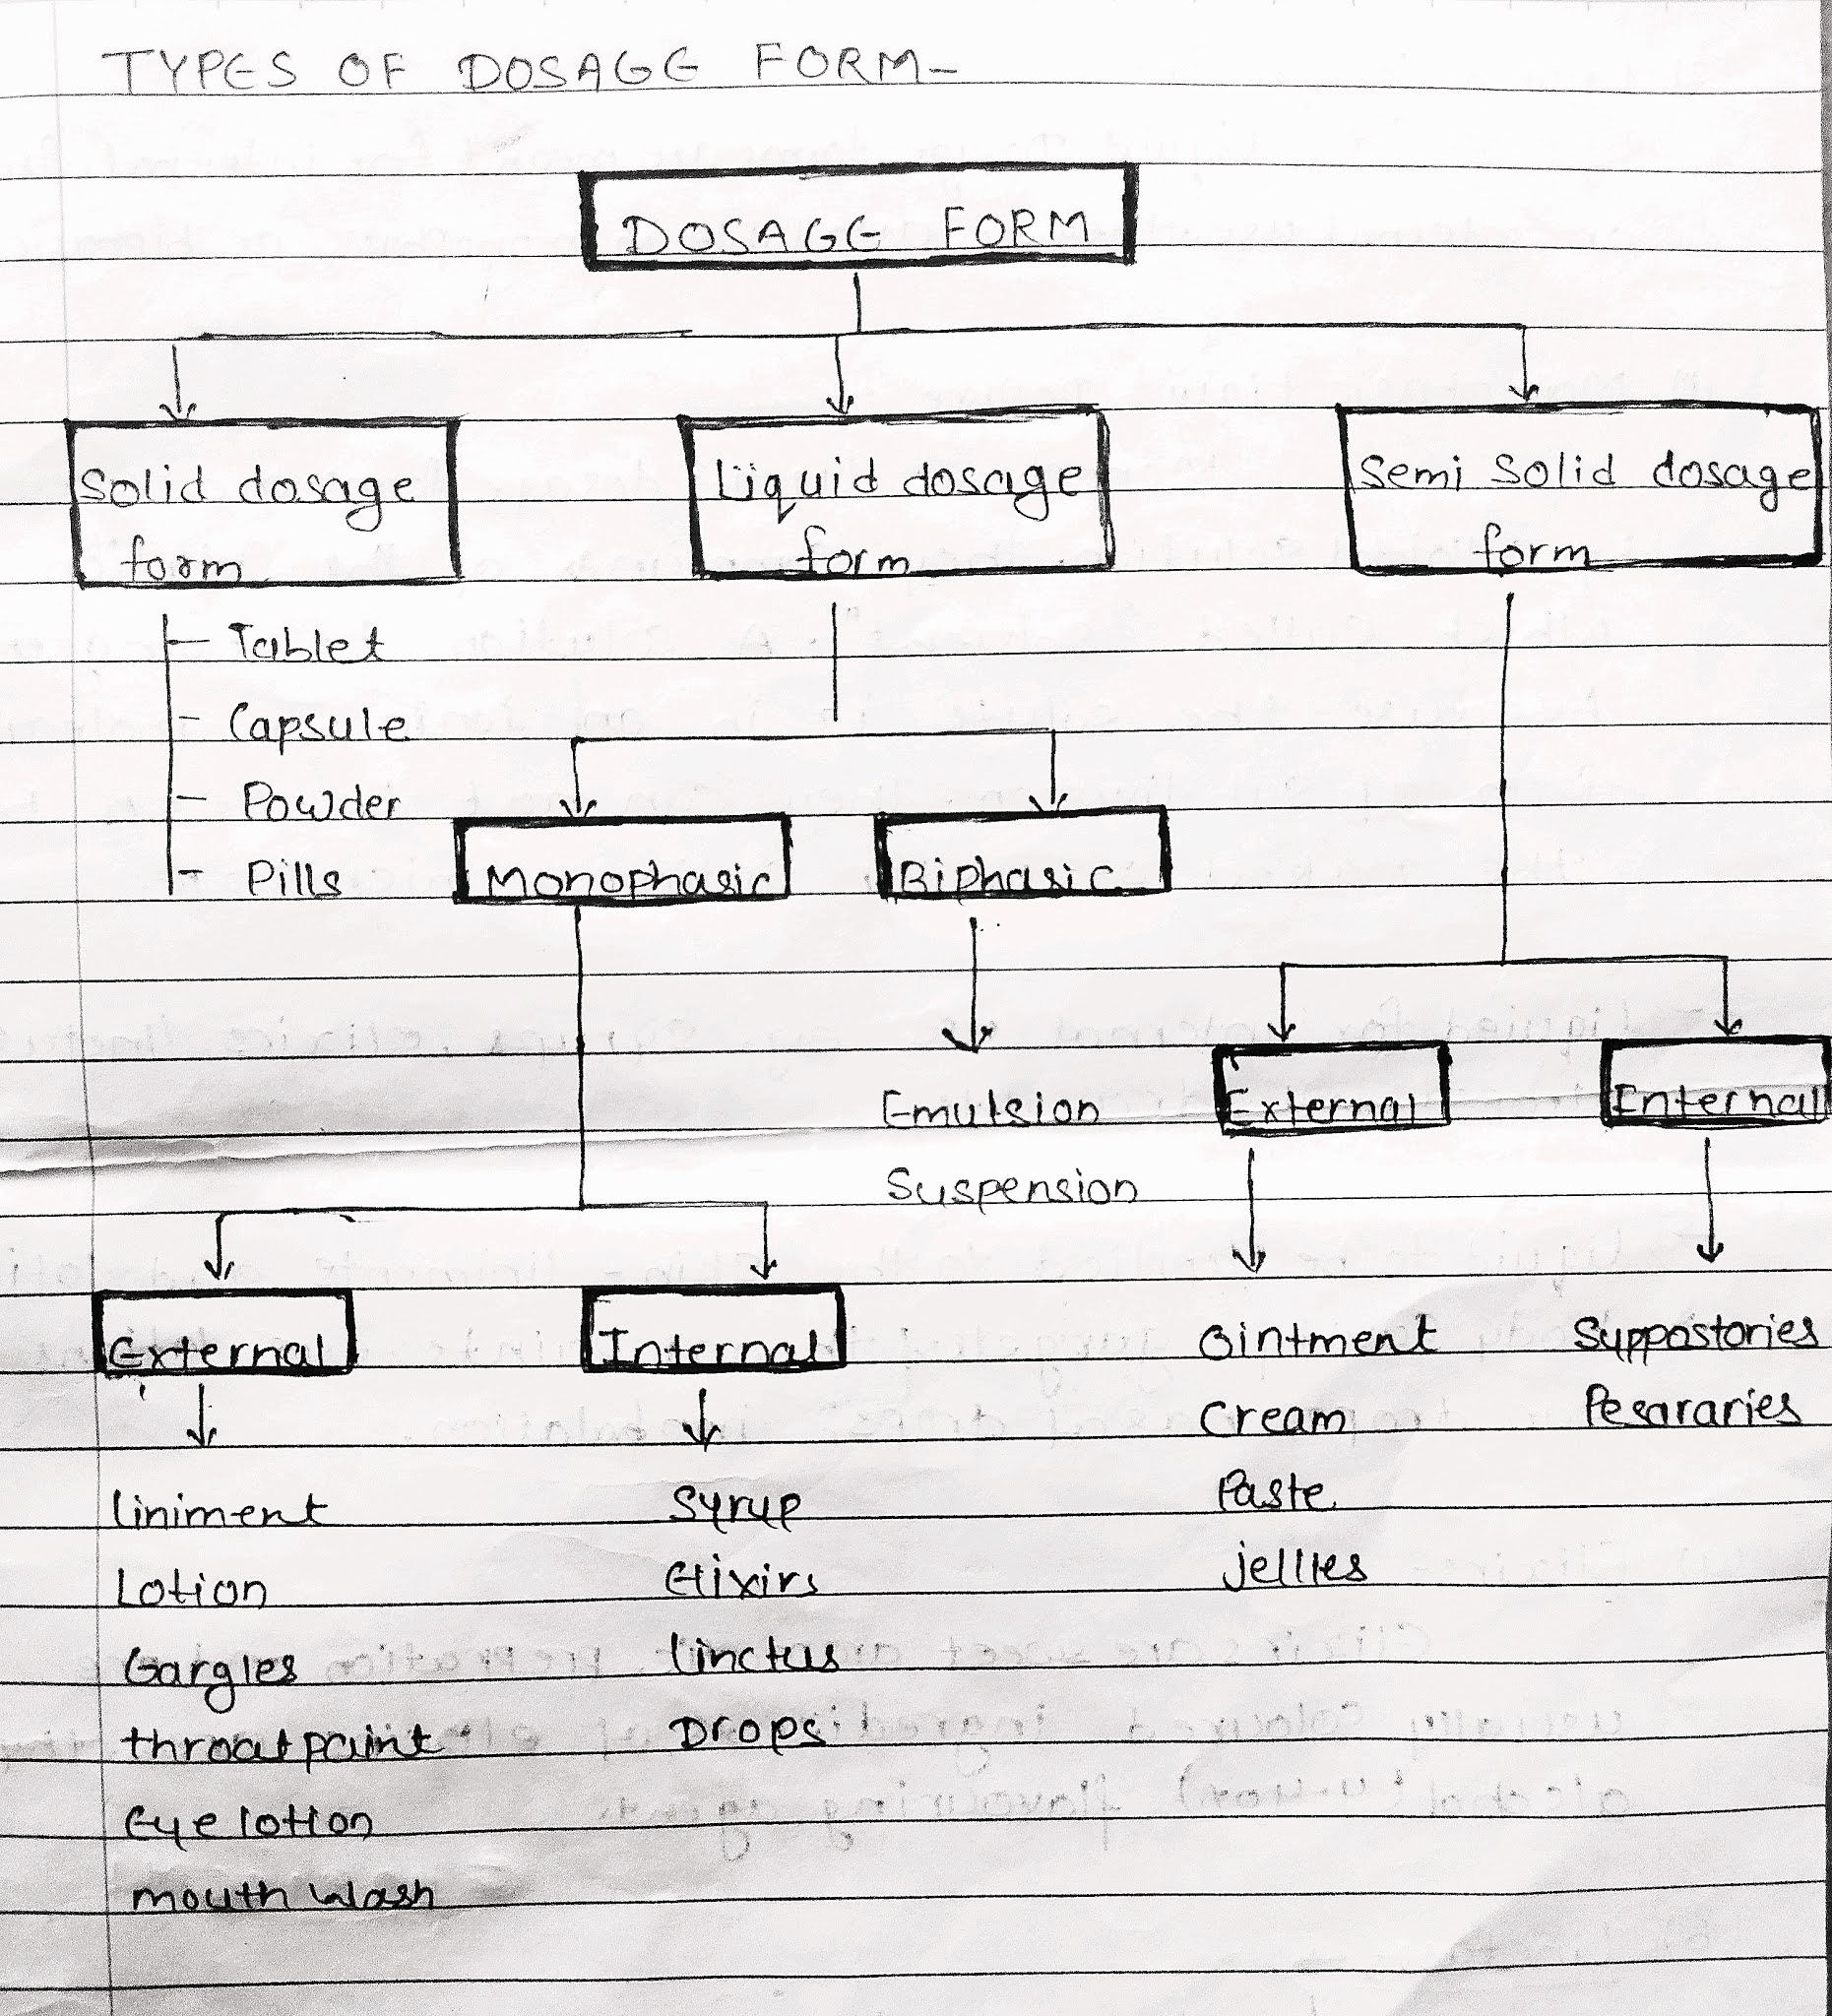 TYPES OF DOSAGE FORM-
DOSAGE FORM
Solid dosage
form
Liquid dosage
form
Semi Solid dosage
form
Tablet
Capsule
Powder
Pills
Monophasic
Biphasic
Emulsion
Suspension
External
Enternal
External
Internal
Ointment
Cream
Paste
jellies
Suppostories
Pesararies
liniment
Lotion
Gargles
throat paint
Eye lotion
mouth wash
Syrup
Elixirs
linctus
Drops